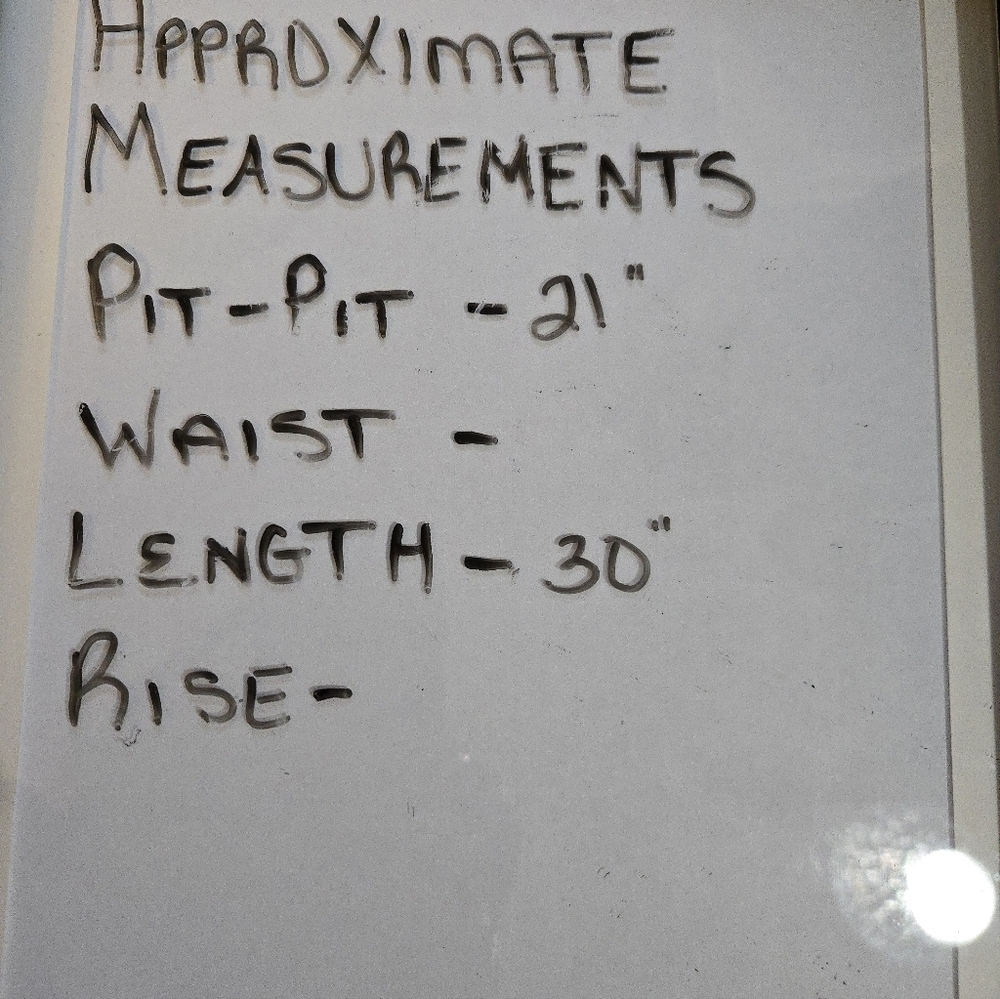 APPROXIMATE
MEASUREMENTS
PIT-PIT - 21"
WAIST -
LENGTH - 30"
RISE-